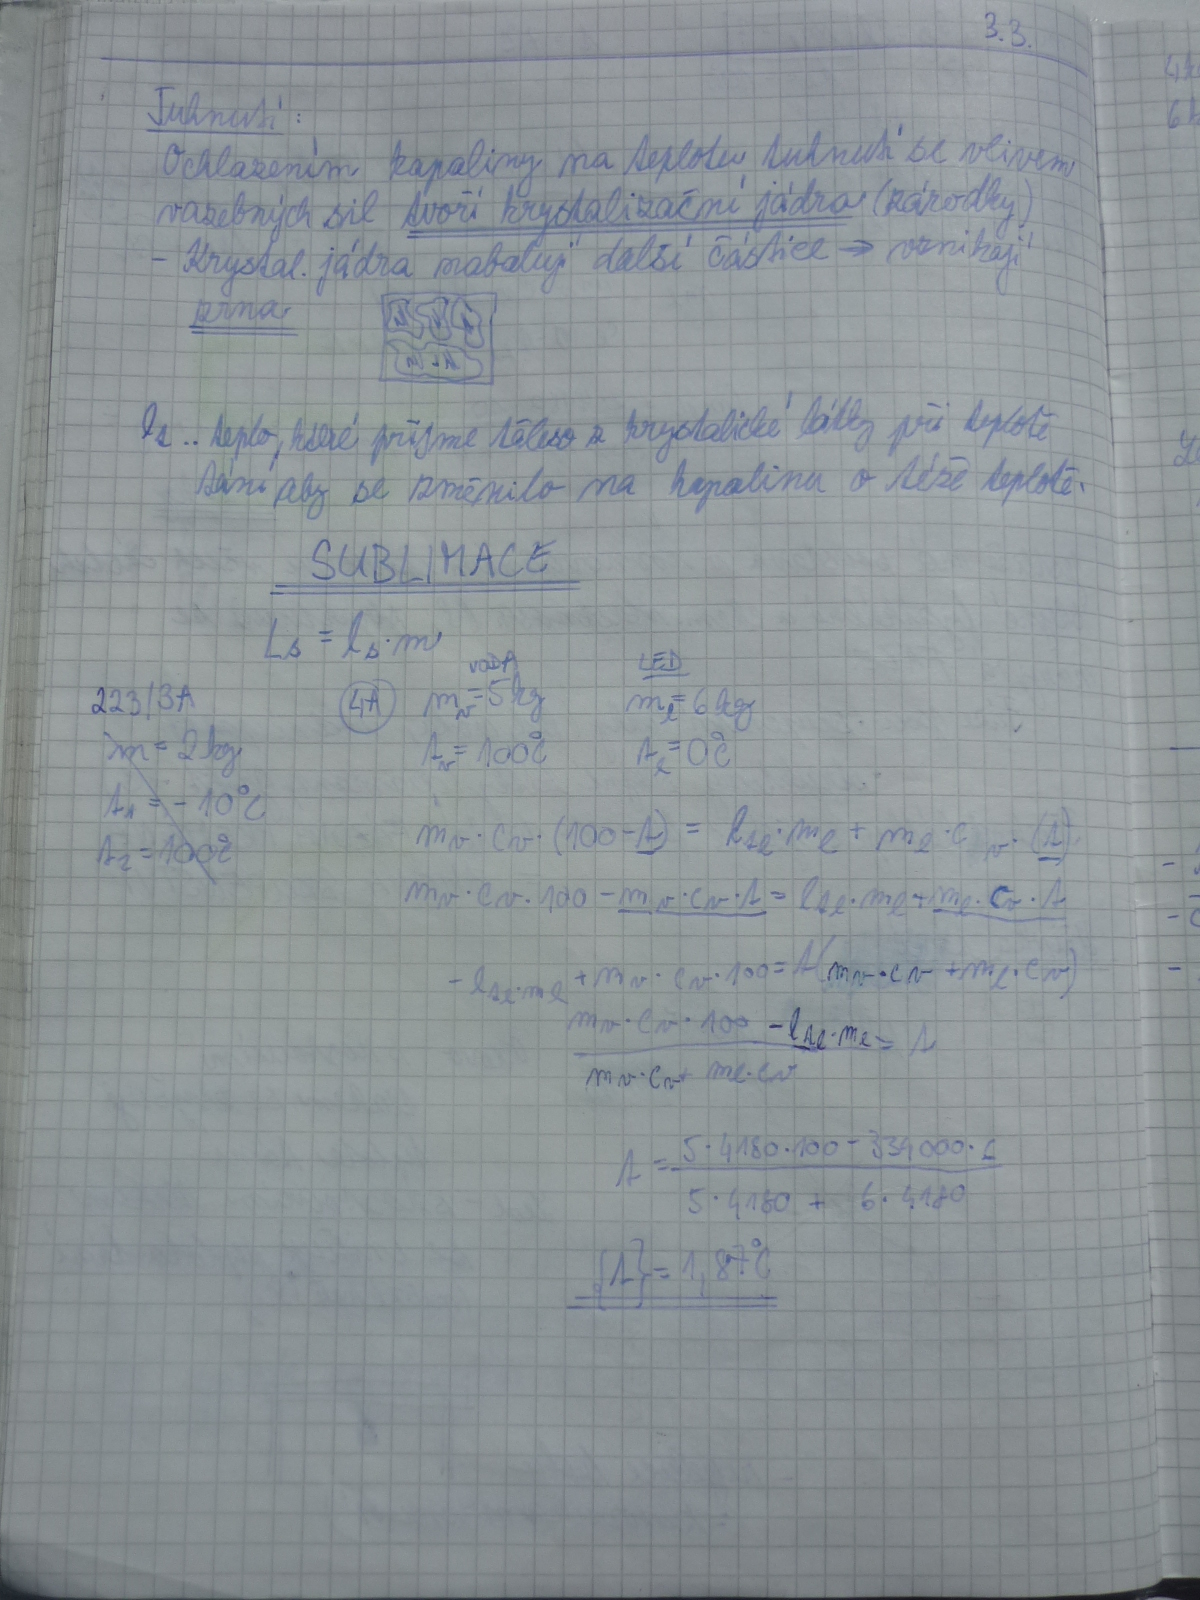 3.3.
Tuhnutí:
Ochlazením kapaliny na teplotu tuhnutí se vlivem
vazebných sil tvoří krystalizační jádra (zárodky)
- Krystal. jádra nabalují další částice → vznikají
zrna
lt .. teplo, které příjme těleso z krystalické látky při teplotě
tání aby se změnilo na kapalinu o téže teplotě.
SUBLIMACE
Ls = ls · m
VODA LED
223/3A 4A mv = 5kg ml = 6kg
m = 2kg tv = 100°C tl = 0°C
t1 = - 10°C
t2 = 100°C
mv · cv · (100 - t) = ltl · ml + ml · cv · (t)
mv · cv · 100 - mv · cv · t = ltl · ml + ml · cv · t
- ltl · ml + mv · cv · 100 = t (mv · cv + ml · cv)
mv · cv · 100 - ltl · ml = t
mv · cv + ml · cv
t = 5 · 4180 · 100 - 334000 ·
5 · 4180 + 6 · 4180
{t} = 1,87°C